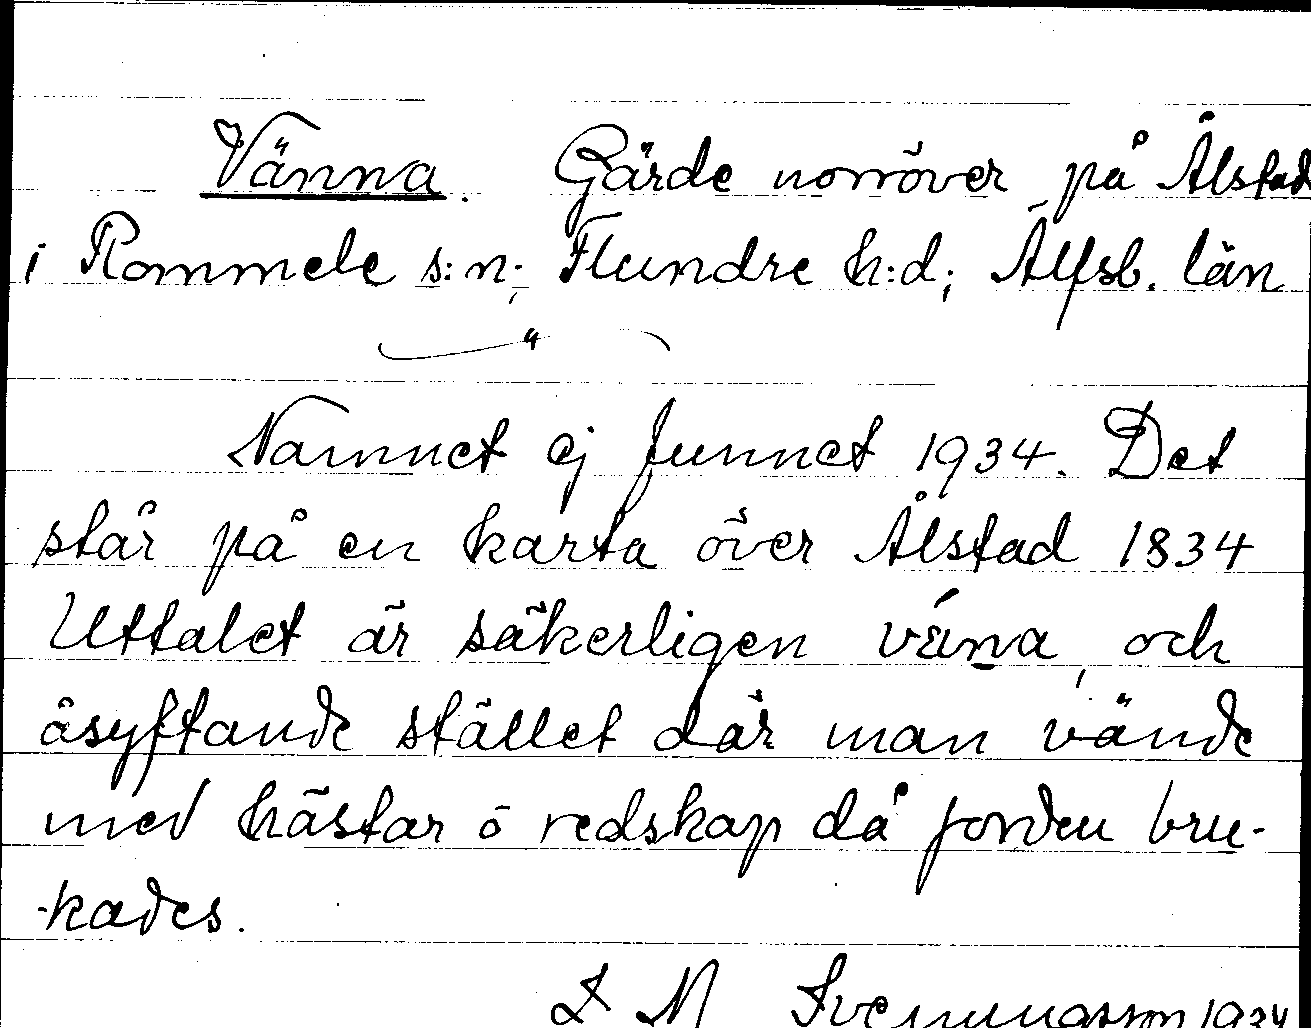 Vänna. Gärde norröver på Ålstad
i Rommele s:n; Flundre h:d; Älfsb. län
Namnet ej funnet 1934. Det
står på en karta över Ålstad 1834
Uttalet är säkerligen och
åsyftande stället där man vände
med hästar o redskap då jorden bru-
-kades.
Svenungsson 1934